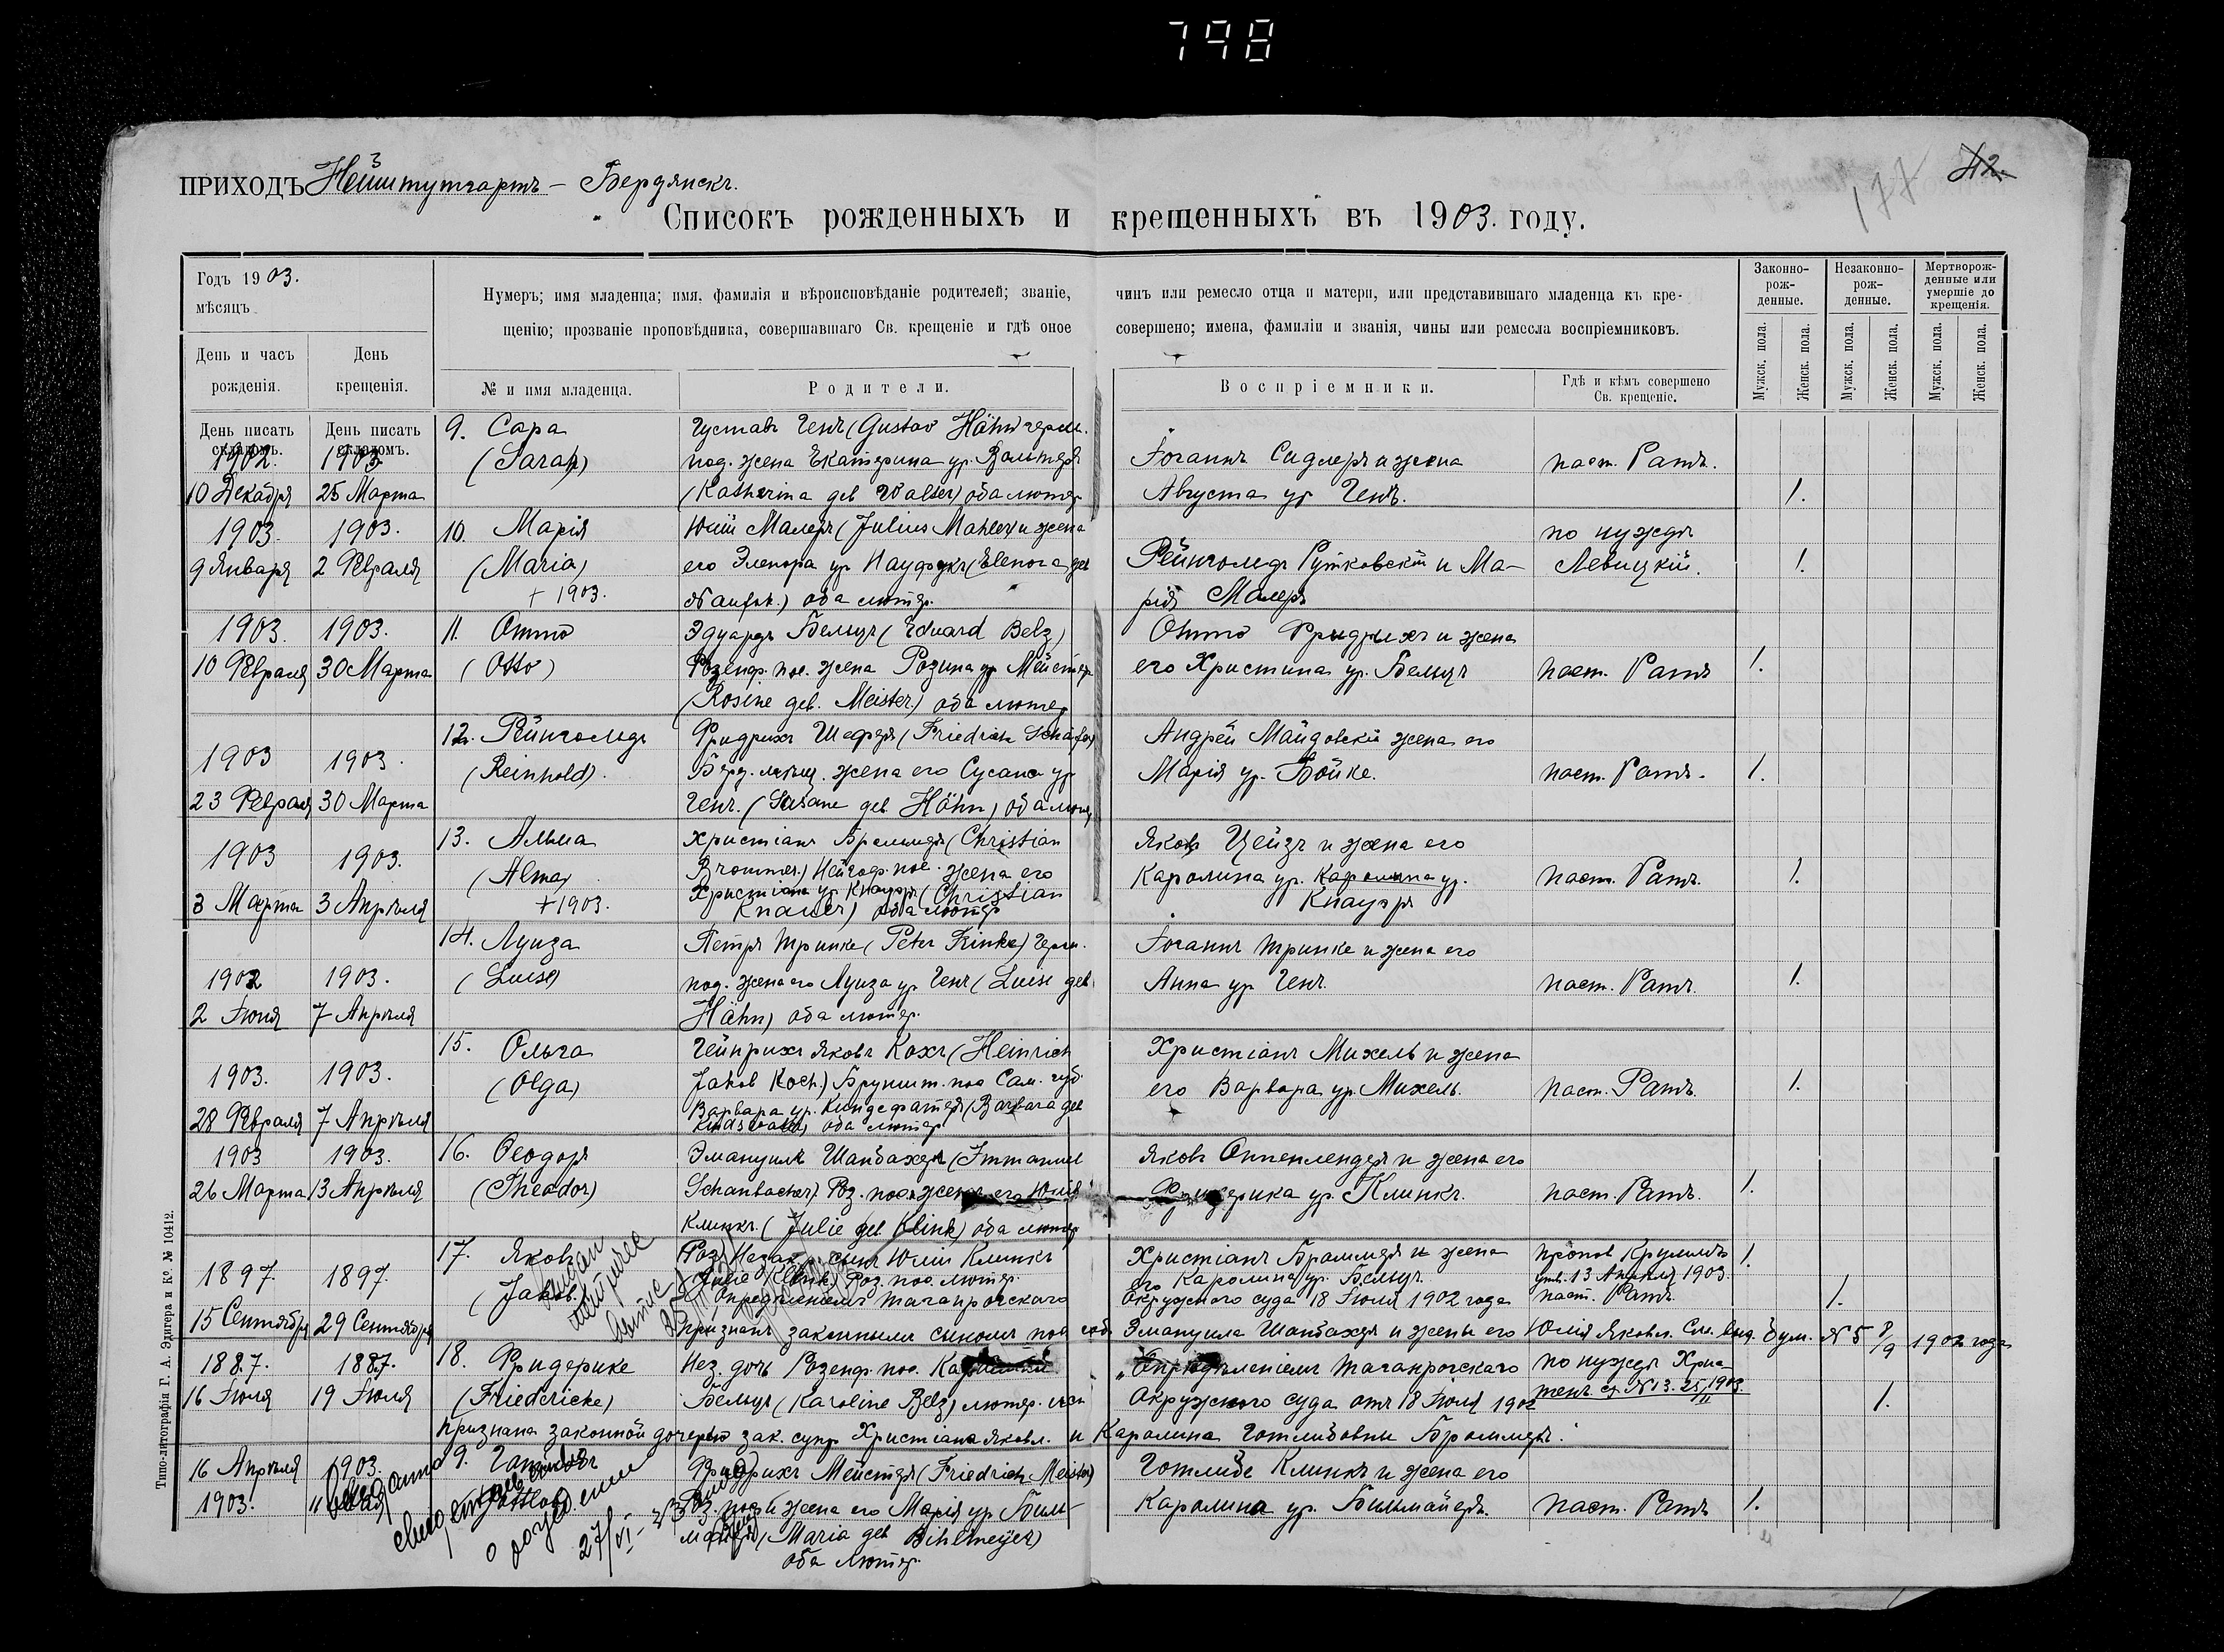 798
ПРИХОДЪ Нейштутгартъ – Бердянскъ.
177
42.
Списокъ рожденныхъ и крещенныхъ въ 1903. году.
Годъ 1903.
мѣсяцъ
День и часъ рожденія.
День крещенія.
Нумеръ; имя младенца; имя, фамилія и вѣроисповѣданіе родителей; званіе, чинъ или ремесло отца и матери, или представившаго младенца къ кре-
щенію; прозваніе проповѣдника, совершавшаго Св. крещеніе и гдѣ оное совершено; имена, фамиліи и званія, чины или ремесла воспріемниковъ.
№ и имя младенца.
Родители.
Воспріемники.
Гдѣ и кѣмъ совершено Св. крещеніе.
Законно-рож-денные.
Незаконно-рож-денные.
Мертворож-денные или умершіе до крещенія.
Мужск. пола. Женск. пола. Мужск. пола. Женск. пола. Мужск. пола. Женск. пола.
День писать складомъ.
День писать складомъ.
1902. 1903.
10 Декабря 25 Марта
9. Сара
(Sarah)
Густавъ Генъ (Gustav Hähn) герм.
под. жена Екатерина ур. Вальтеръ
(Katherina geb Walter) оба лютер
Іоганнъ Сидлеръ и жена
Августа ур Генъ.
паст. Ратъ.
1.
1903. 1903.
9 Января 2 Февраля
10. Марія
(Maria)
+ 1903.
Юлій Малеръ (Julius Mahler) и жена
его Элеонора ур Науфокъ (Elenora geb
Naufok.) оба лютер.
Рейнгольдъ Рутковскій и Ма-
рія Малеръ
по нуждѣ
Левицкій.
1.
1903. 1903.
10 Февраля 30 Марта
11. Отто
(Otto)
Эдуардъ Бельцъ (Eduard Belz)
Розенф. пос. жена Розина ур Мейстеръ
(Rosine geb. Meister.) оба лютер
Отто Фридрихъ и жена
его Христина ур. Бельцъ
паст. Ратъ
1.
1903 1903.
23 Февраля 30 Марта
12. Рейнгольдъ
(Reinhold).
Фридрихъ Шеферъ (Friedrich Schäfer)
Берд. мѣщ. жена его Сусана ур
Генъ. (Susane geb Hähn) оба лют
Андрей Майдовскій жена его
Марія ур. Бойке.
паст. Ратъ.
1.
1903 1903.
3 Марта 3 Апрѣля
13. Альма
(Alma)
+ 1903.
Христіанъ Броммеръ (Christian
Brommer.) Нейгоф. пос. жена его
Христіана ур Кнауеръ (Christian
Knauer) оба лютер
Яковъ Цейзъ и жена его
Каролина ур. Каролина ур.
Кнауеръ
паст. Ратъ.
1.
1902 1903.
2 Іюня 7 Апрѣля
14. Луиза
(Luise)
Петръ Тринке (Peter Trinke) Герм.
под. жена его Луиза ур Генъ (Luise geb
Hähn) оба лютер.
Іоганнъ Тринке и жена его
Анна ур Генъ
паст. Ратъ.
1.
1903. 1903.
28 Февраля 7 Апрѣля
15. Ольга
(Olga)
Гейнрихъ Яковъ Кохъ (Heinrich
Jakob Koch.) Пос Сам. губ.
Варвара ур. Киндсфатеръ (Barbara geb
Kindsvater) оба лютер
Христіанъ Михель и жена
его Варвара ур Михель.
паст. Ратъ.
1.
1903 1903.
26 Марта 13 Апрѣля
16. Ѳеодоръ
(Theodor)
Эмануилъ Шанбахеръ (Immanuel
Schanbacher) Роз. пос. жена его Юлія
Клинкъ. (Julie geb Klink) оба лютер
Яковъ Оппенлендеръ и жена его
Фридерика ур. Клинкъ.
паст. Ратъ.
1.
1897. 1897.
15 Сентября 29 Сентября
17. Яковъ
(Jakob)
Роз. Незак. сынъ Юліи Клинкъ
(Julie Klink) Роз. пос. лютер.
Опредѣленіемъ Таганрогскаго
Христіанъ Броммеръ и жена
его Каролина ур. Бельцъ.
Окружного суда 18 Іюля 1902 года
утв. 13 Апрѣля 1903.
паст. Ратъ.
1.
1.
признанъ законнымъ сыномъ Эмануила Шанбахеръ и жены его Юлія Яковл. См. вход. бум. N 5 8/9 1902 года
1887. 1887.
16 Іюля 19 Іюля
18. Фридерике
(Friedericke)
Нез. дочь Розенф. пос.
Бельцъ (Karoline Belz) лютер.
„Опредѣленіемъ Таганрогскаго
Окружного суда отъ 18 Іюля 1902
по нуждѣ
N 13. 25/II 1903.
1.
признана законной дочерью зак. супр Христіана Яковл. и Каролина Готлибовны Броммеръ.
16 Апрѣля 1903.
1903.
9. Готлибъ
(Gottlob)
Фридрихъ Мейстеръ (Friedrich Meister)
пос и жена его Марія ур Биль-
(Maria geb Bihlmeyer)
оба лютер.
Готлибъ Клинкъ и жена его
Каролина ур. Бильмайеръ.
паст. Ратъ
1.
27/VI
Типо-литографія Г. А. Эдигера и Ко. № 10412.